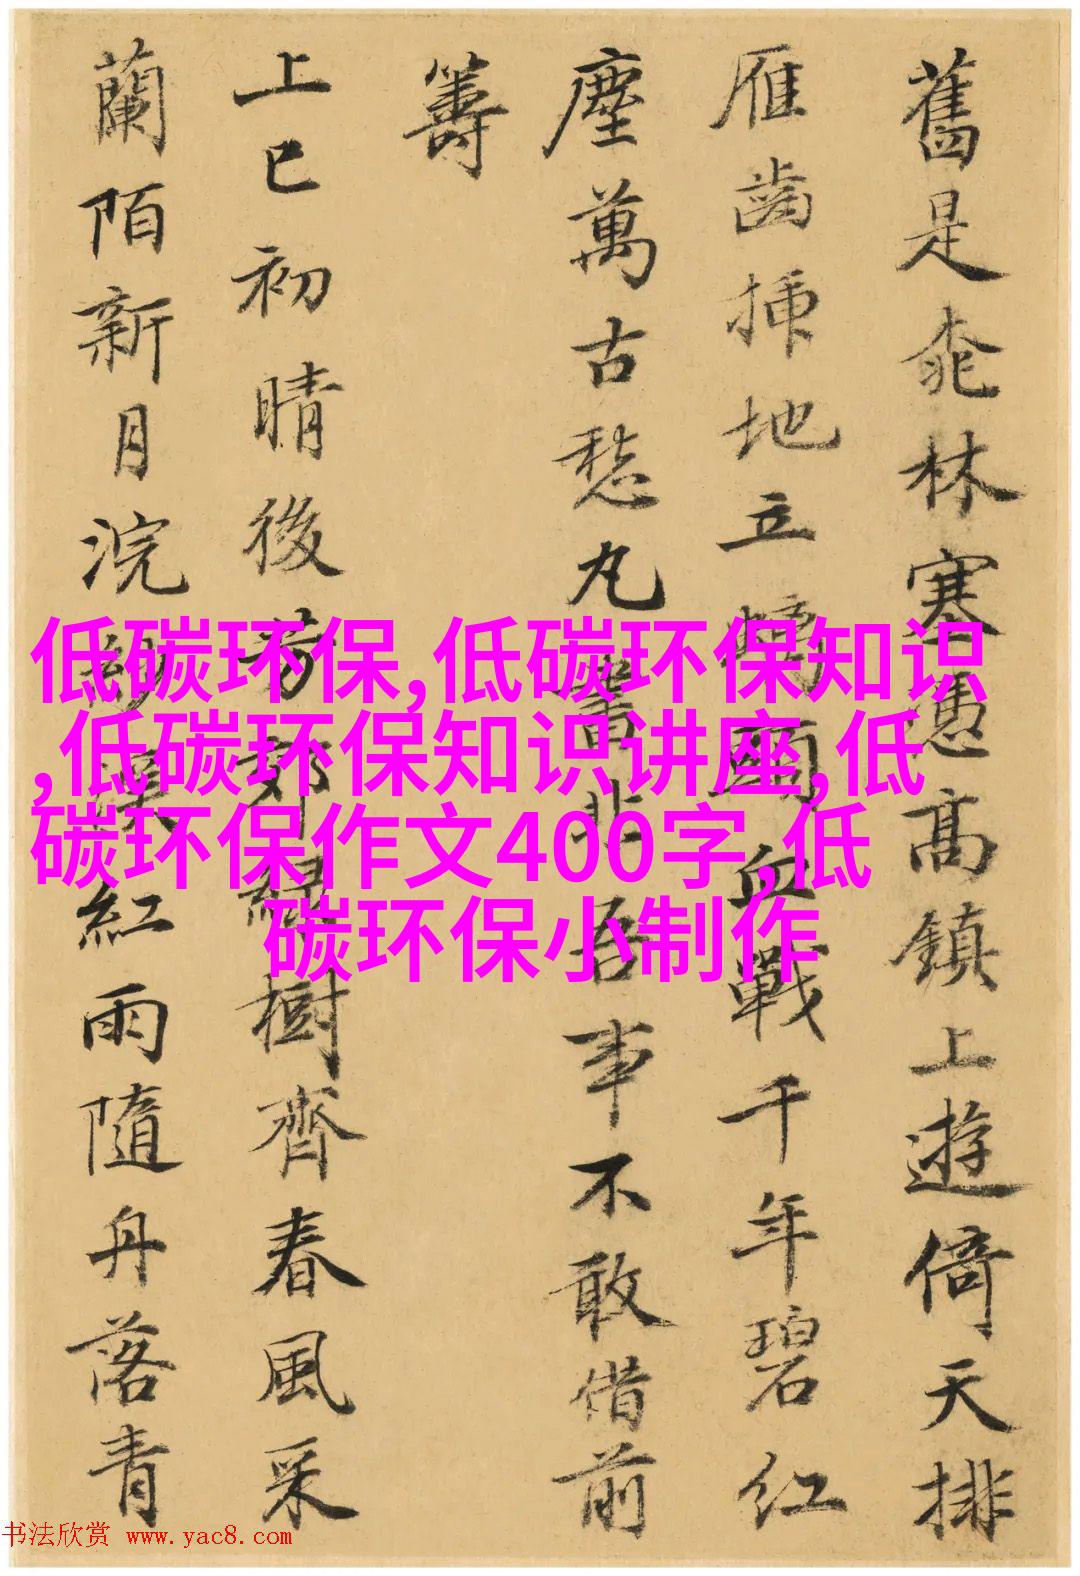 舊是桃林塞憑高鎮上遊倚天排
雁齒插地立犢頭血戰千年碧紅
塵萬古愁丸署非吾事不敢借前
籌
上巳初晴後芳郊綠樹齊春風采
蘭陌新月浣紗溪紅雨隨丹落青
低碳环保,低碳环保知识
,低碳环保知识讲座,低
碳环保作文400字,低
碳环保小制作
书法欣赏 www.yac8.com